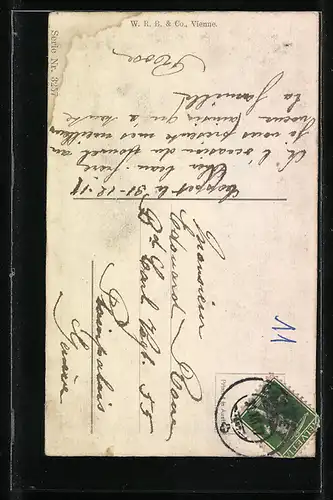 W. R. B. & Co., Vienne.
Serie Nr. 3257
Coppet le 31-12-17
Cher beau-père
A l'occasion du Nouvel an
je vous présente mes meilleurs
voeux ainsi qu'à toute
la famille
Rose
Monsieur
Edouard
Bd Carl Vogt 55
Plainpalais
Genève
11
HELVETIA